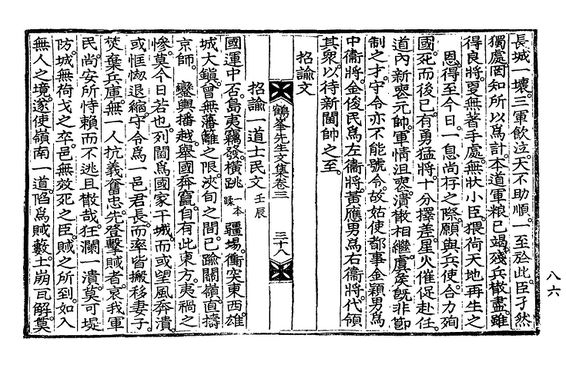 長城一壞三軍飮泣天不助順一至於此臣孑然
獨處罔知所以爲計本道軍粮已竭殘兵散盡雖
得良將更無著手處無狀小臣猥荷天地再生之
恩得至今日一息尙存之際願與兵使合力殉
國死而後已有勇猛將十分擇差星火催促赴任
道內新喪元帥軍情沮喪潰散相繼虞候旣非節
制之才守令亦不能號令故姑使都事金穎男爲
中衛將金俊民爲左衛將黃應男爲右衛將代領
其衆以待新閫帥之至
招諭文
鶴峯先生文集卷三 三十八
招諭一道士民文 壬辰
國運中否島夷竊發橫跳一本 疆場衝突東西雄
城大鎭曾無藩籬之限浹旬之間已踰關嶺直擣
京師 鑾輿播越擧國奔竄自有此東方夷禍之
慘莫今日若也列閫爲國家干城而或望風奔潰
或恇㥘退縮守令爲一邑君長而率皆搬移妻子
焚棄兵庫無一人抗義奮忠先登擊賊者哀我軍
民尙安所恃賴而不逃且散哉狂瀾一潰莫可堤
防城無荷戈之卒邑無效死之臣賊之所到如入
無人之境遂使嶺南一道陷爲賊藪土崩瓦解莫
八六